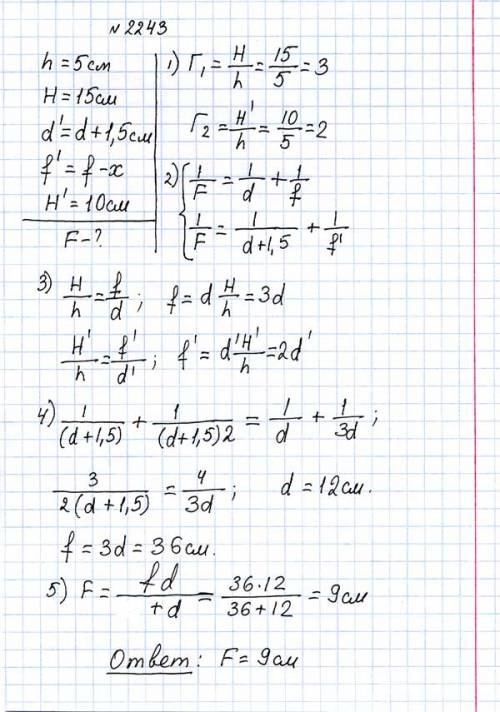 N 2243
h = 5см
H = 15см
d' = d + 1,5см
f' = f - x
H' = 10см
F - ?
1) Г₁ = H/h = 15/5 = 3
Г₂ = H'/h = 10/5 = 2
2) { 1/F = 1/d + 1/f
1/F = 1/(d+1,5) + 1/f'
3) H/h = f/d ; f = d H/h = 3d
H'/h = f'/d' ; f' = d'H'/h = 2d'
4) 1/(d+1,5) + 1/((d+1,5)2) = 1/d + 1/3d ;
3/(2(d+1,5)) = 4/3d ; d = 12см.
f = 3d = 36см.
5) F = fd/(+d) = 36·12/(36+12) = 9см
Ответ: F = 9см